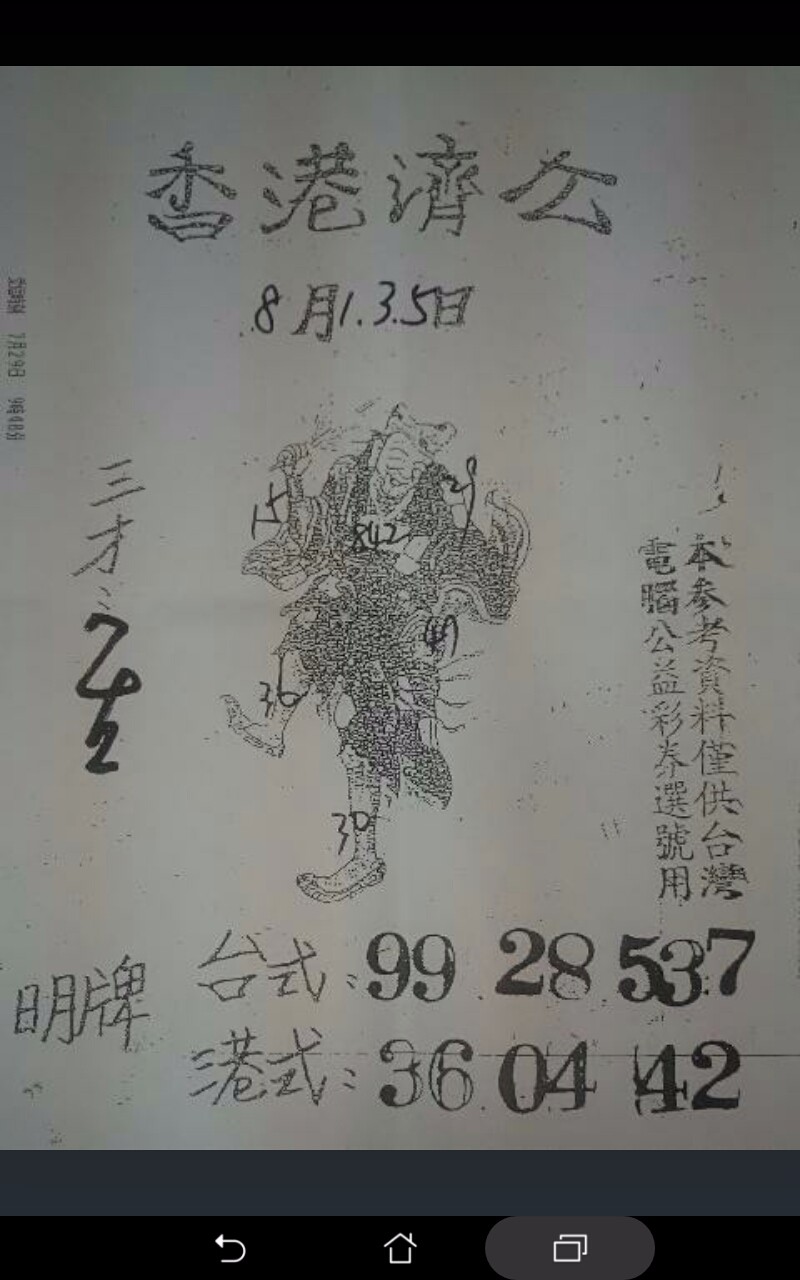 香港濟公
8月1.3.5日
7月29日 9時48分
三才：
15
29
842
49
36
30
本參考資料僅供台灣
電腦公益彩券選號用
明牌
台式：99 28 537
港式：36 04 42